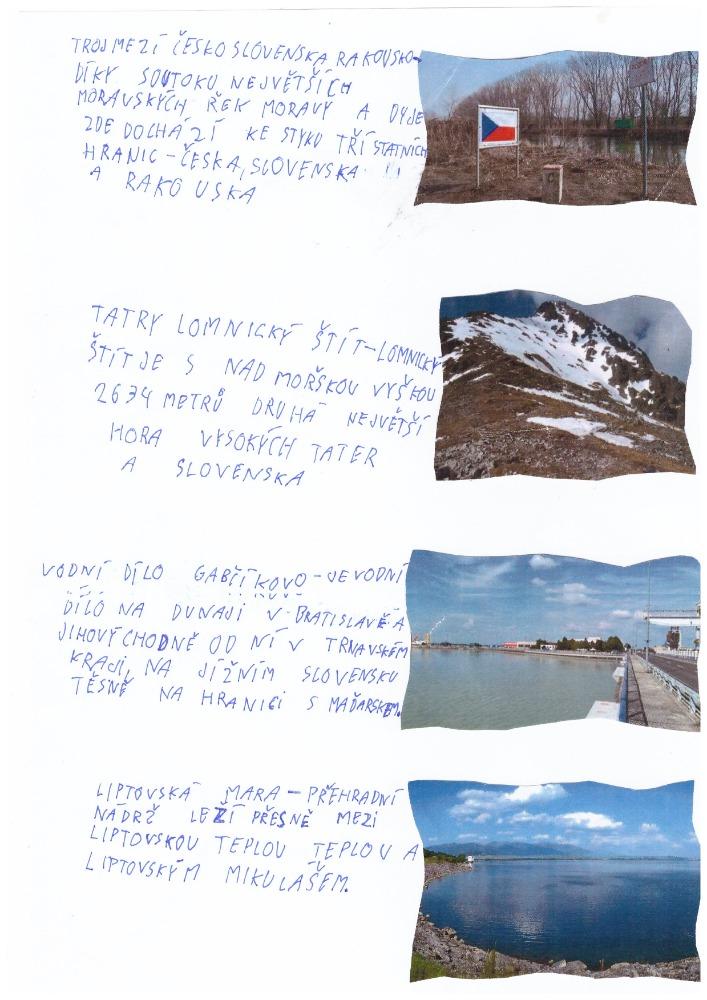 TROJMEZÍ ČESKO SLOVENSKA RAKOUSKO-
DÍKY SOUTOKU NEJVĚTŠÍCH
MORAVSKÝCH ŘEK MORAVY A DYJE
ZDE DOCHÁZÍ KE STYKU TŘÍ STATNÍCH
HRANIC-ČESKA, SLOVENSKA
A RAKO USKA
TATRY LOMNICKÝ ŠTÍT-LOMNICKÝ
ŠTÍT JE S NAD MOŘSKOU VÝŠKOU
2634 METRŮ DRUHÁ NEJVĚTŠÍ
HORA VYSOKÝCH TATER
A SLOVENSKA
VODNÍ DÍLO GABČÍKOVO-JE VODNÍ
DÍLO NA DUNAJI V BRATISLAVĚ A
JIHOVÝCHODNĚ OD NÍ V TRNAVSKÉM
KRAJI, NA JÍŽNÍM SLOVENSKU
TĚSNĚ NA HRANICI S MAĎARSKEM.
LIPTOVSKÁ MARA - PŘEHRADNÍ
NÁDRŽ LEŽÍ PŘESNĚ MEZI
LIPTOVSKOU TEPLOU TEPLOU A
LIPTOVSKÝM MIKULÁŠEM.